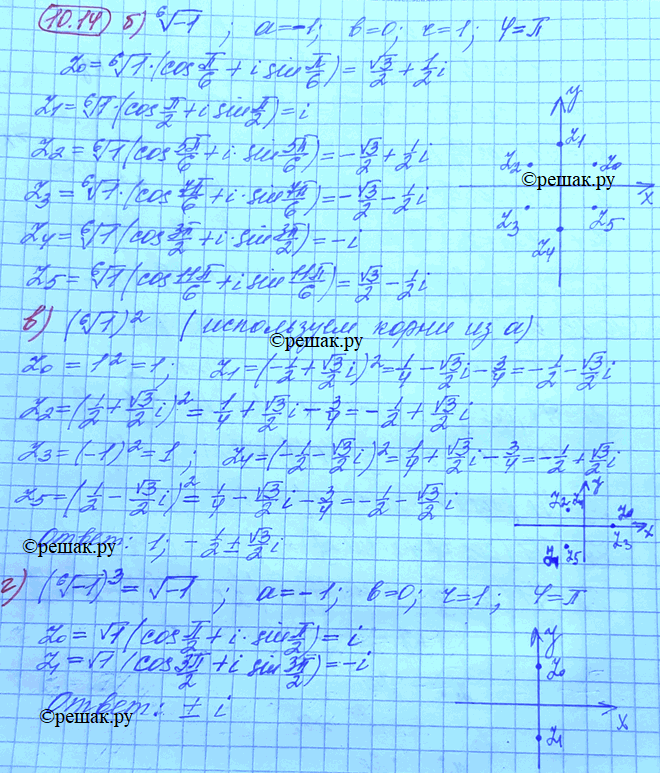 10.14 б) ⁶√-1 ; a=-1; b=0; r=1; φ=π
Z₀ = ⁶√1·(cos π/6 + i sin π/6) = √3/2 + 1/2 i
Z₁ = ⁶√1·(cos π/2 + i sin π/2) = i
Z₂ = ⁶√1 (cos 5π/6 + i· sin 5π/6) = -√3/2 + 1/2 i
Z₃ = ⁶√1·(cos 7π/6 + i· sin 7π/6) = -√3/2 - 1/2 i
Z₄ = ⁶√1 (cos 3π/2 + i· sin 3π/2) = -i
Z₅ = ⁶√1 (cos 11π/6 + i sin 11π/6) = √3/2 - 1/2 i
y
Z₁
Z₂ Z₀
©решак.ру
x
Z₃ Z₅
Z₄
в) (⁶√1)² (используем корни из а)
©решак.ру
Z₀ = 1² = 1; Z₁ = (-1/2 + √3/2 i)² = 1/4 - √3/2 i - 3/4 = -1/2 - √3/2 i
Z₂ = (1/2 + √3/2 i)² = 1/4 + √3/2 i - 3/4 = -1/2 + √3/2 i
Z₃ = (-1)² = 1 ; Z₄ = (-1/2 - √3/2 i)² = 1/4 + √3/2 i - 3/4 = -1/2 + √3/2 i
Z₅ = (1/2 - √3/2 i)² = 1/4 - √3/2 i - 3/4 = -1/2 - √3/2 i
y
Z₂
Z₀
Z₃
x
Z₅
Ответ: 1; -1/2 ± √3/2 i
©решак.ру
г) (⁶√-1)³ = √-1 ; a=-1; b=0; r=1; φ=π
Z₀ = √1 (cos π/2 + i· sin π/2) = i
Z₁ = √1 (cos 3π/2 + i sin 3π/2) = -i
Ответ: ± i
©решак.ру
y
Z₀
x
Z₁